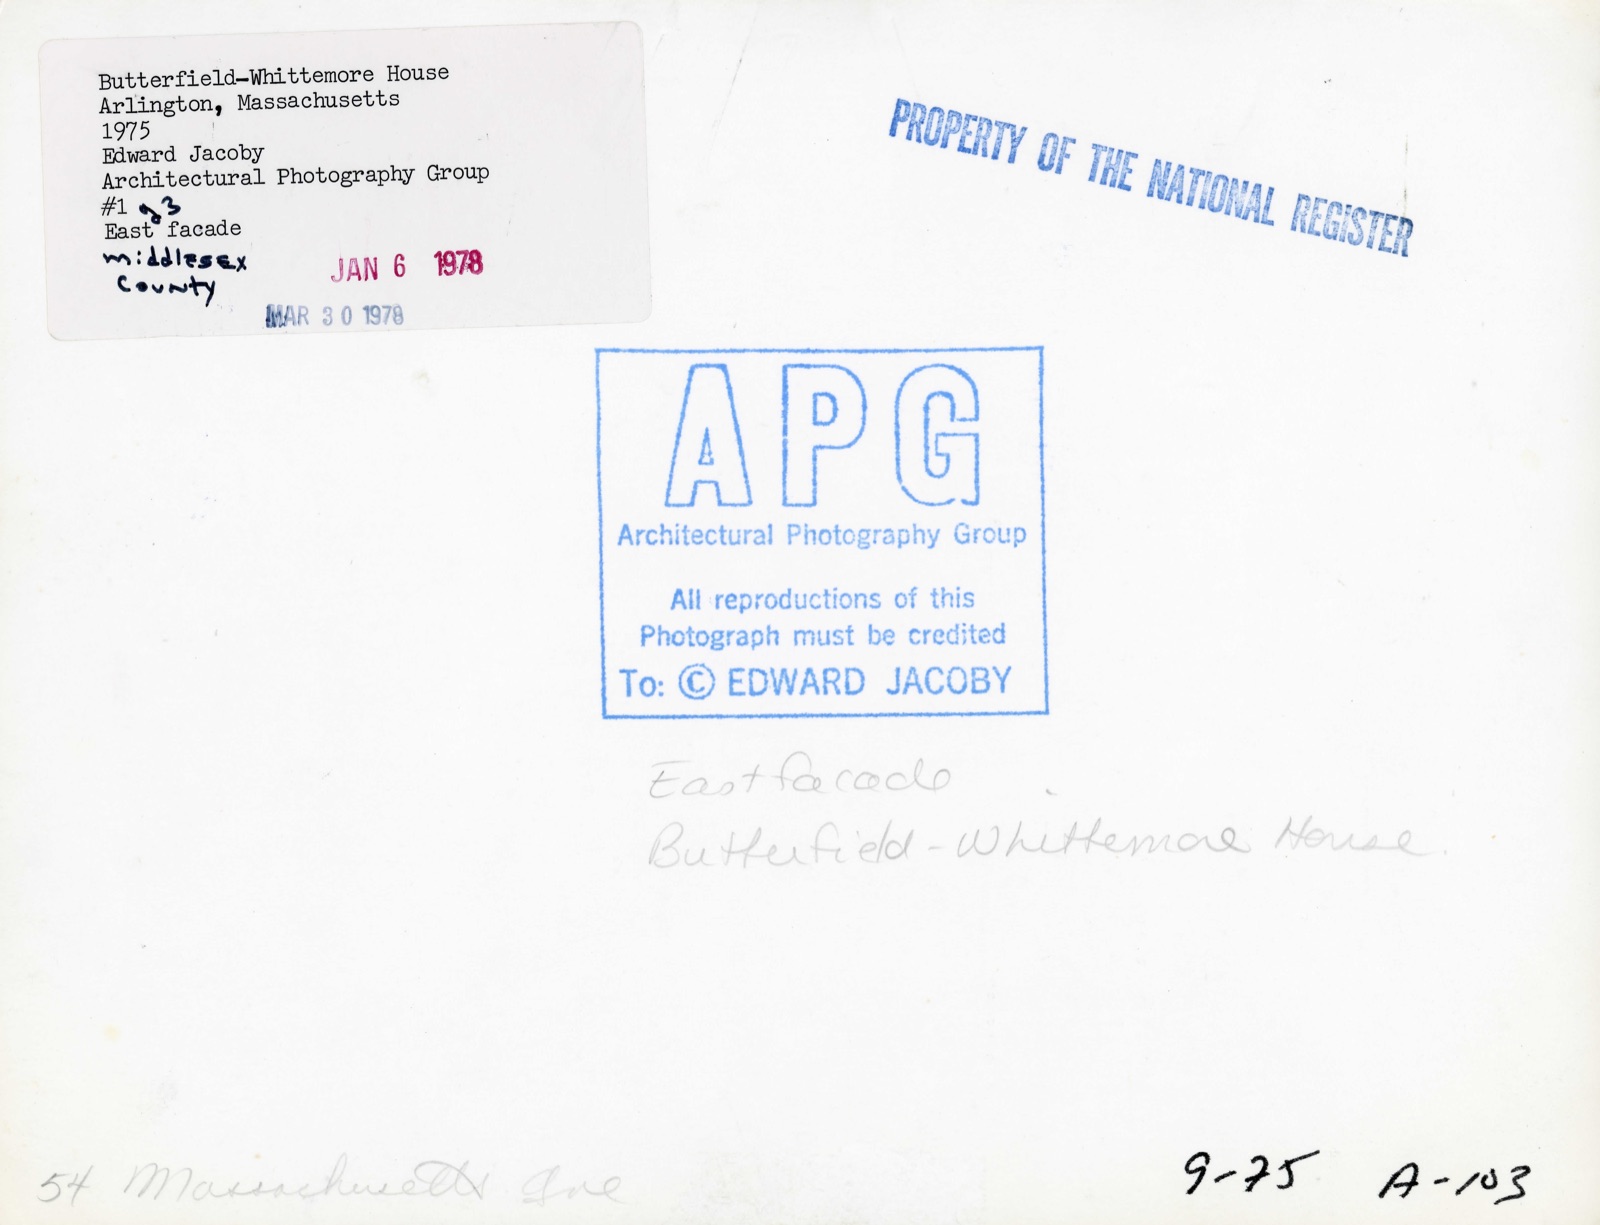 Butterfield-Whittemore House
Arlington, Massachusetts
1975
Edward Jacoby
Architectural Photography Group
#1 of 3
East facade
Middlesex
County
JAN 6 1978
MAR 30 1978
PROPERTY OF THE NATIONAL REGISTER
APG
Architectural Photography Group
All reproductions of this
Photograph must be credited
To: © EDWARD JACOBY
East facade
Butterfield-Whittemore House
54 Massachusetts Ave
9-75 A-103